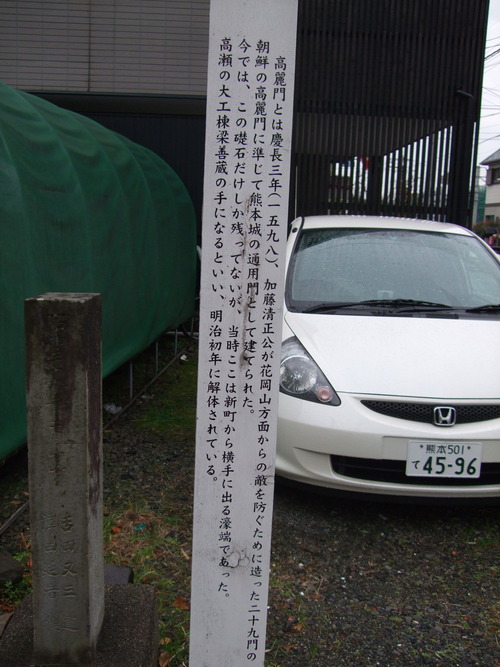 高麗門とは慶長三年(一五九八)、加藤清正公が花岡山方面からの敵を防ぐために造った二十九門の
朝鮮の高麗門に準じて熊本城の通用門として建てられた。
今では、この礎石だけしか残ってないが、当時ここは新町から横手に出る濠端であった。
高瀬の大工棟梁善蔵の手になるといい、明治初年に解体されている。
熊本 501
て 45-96